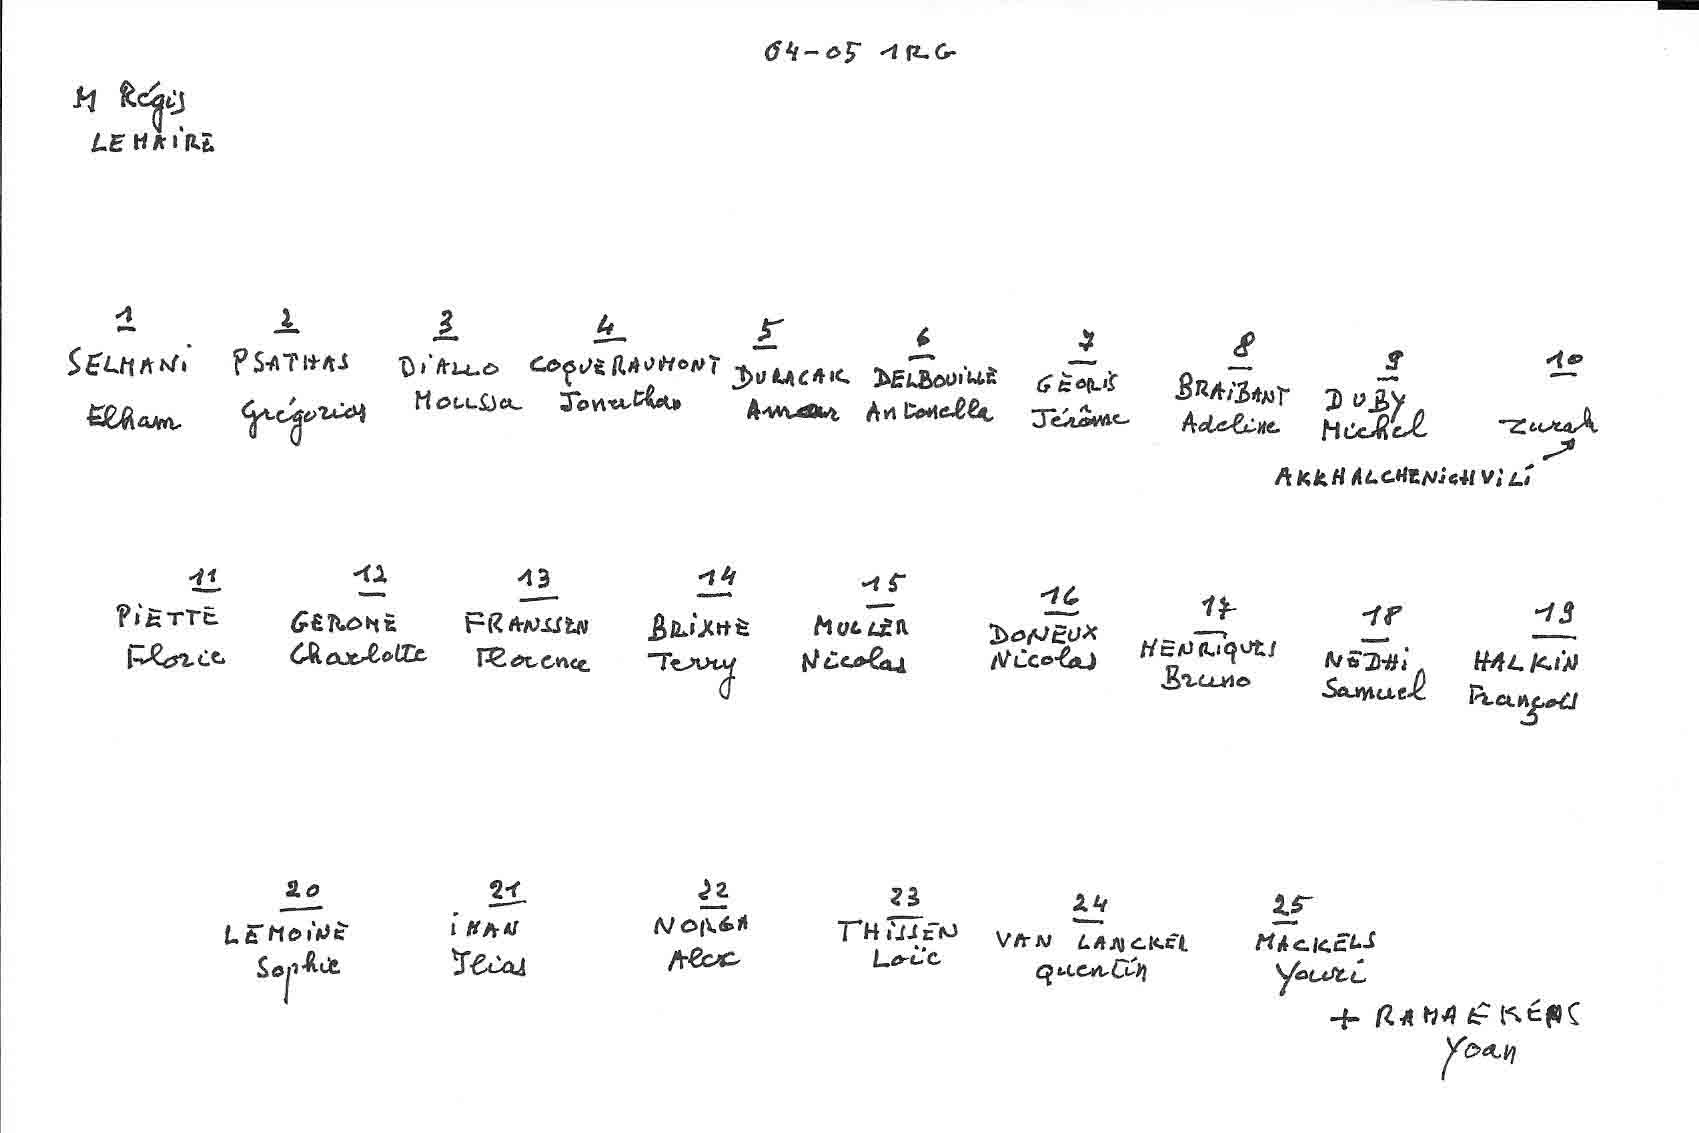 04-05 1RG
M Régis
LEMAIRE
1 2 3 4 5 6 7 8 9 10
SELMANI PSATHAS DIALLO COQUERAUMONT DURACAK DELBOUILLE GEORIS BRAIBANT DUBY
Elham Grégorios Moussa Jonathan Antonella Jérôme Adeline Michel Zurab
AKKHALCHENICHVILI
11 12 13 14 15 16 17 18 19
PIETTE GEROME FRANSSEN BRIXHE MULLER DONEUX HENRIQUES NEDHI HALKIN
Florie Charlotte Florence Terry Nicolas Nicolas Bruno Samuel François
20 21 22 23 24 25
LEMOINE IHAN NORGA THISSEN VAN LANCKER MACKELS
Sophie Ilias Alex Loïc Quentin Youri
+ RAMAEKERS
Yoan